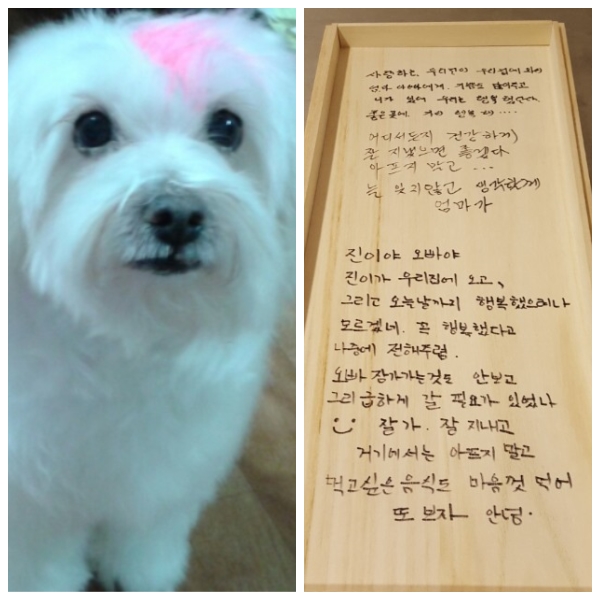 사랑하는 우리진이 우리집에 와서
엄마 아빠에게 기쁨을 많이주고
너가 있어 우리는 행복 했단다.
좋은곳에 가서 행복 해 ....
어디서든지 건강하게
잘 지냈으면 좋겠다
아프지 말고 ...
늘 잊지않고 생각할께
엄마가
진이야 오빠야
진이가 우리집에 오고,
그리고 오늘날까지 행복했으려나
모르겠네. 꼭 행복했다고
나중에 전해주렴.
오빠 장가가는것도 안보고
그리 급하게 갈 필요가 있었나
잘가. 잘 지내고
거기에서는 아프지 말고
먹고싶은 음식도 마음껏 먹어
또 보자 안녕.